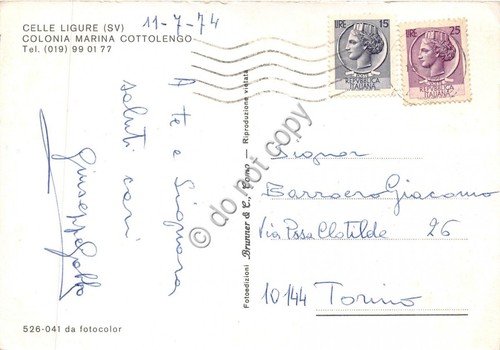 CELLE LIGURE (SV)
COLONIA MARINA COTTOLENGO
Tel. (019) 99 01 77
11-7-74
A te e Signora
saluti cari
Giuseppe Gatto
526-041 da fotocolor
Fotoedizioni Brunner & C., Como - Riproduzione vietata
LIRE 15
REPUBBLICA
ITALIANA
LIRE 25
REPUBBLICA
ITALIANA
Signor
Barroero Giacomo
Via Pssa Clotilde 26
10144 Torino
© do not copy